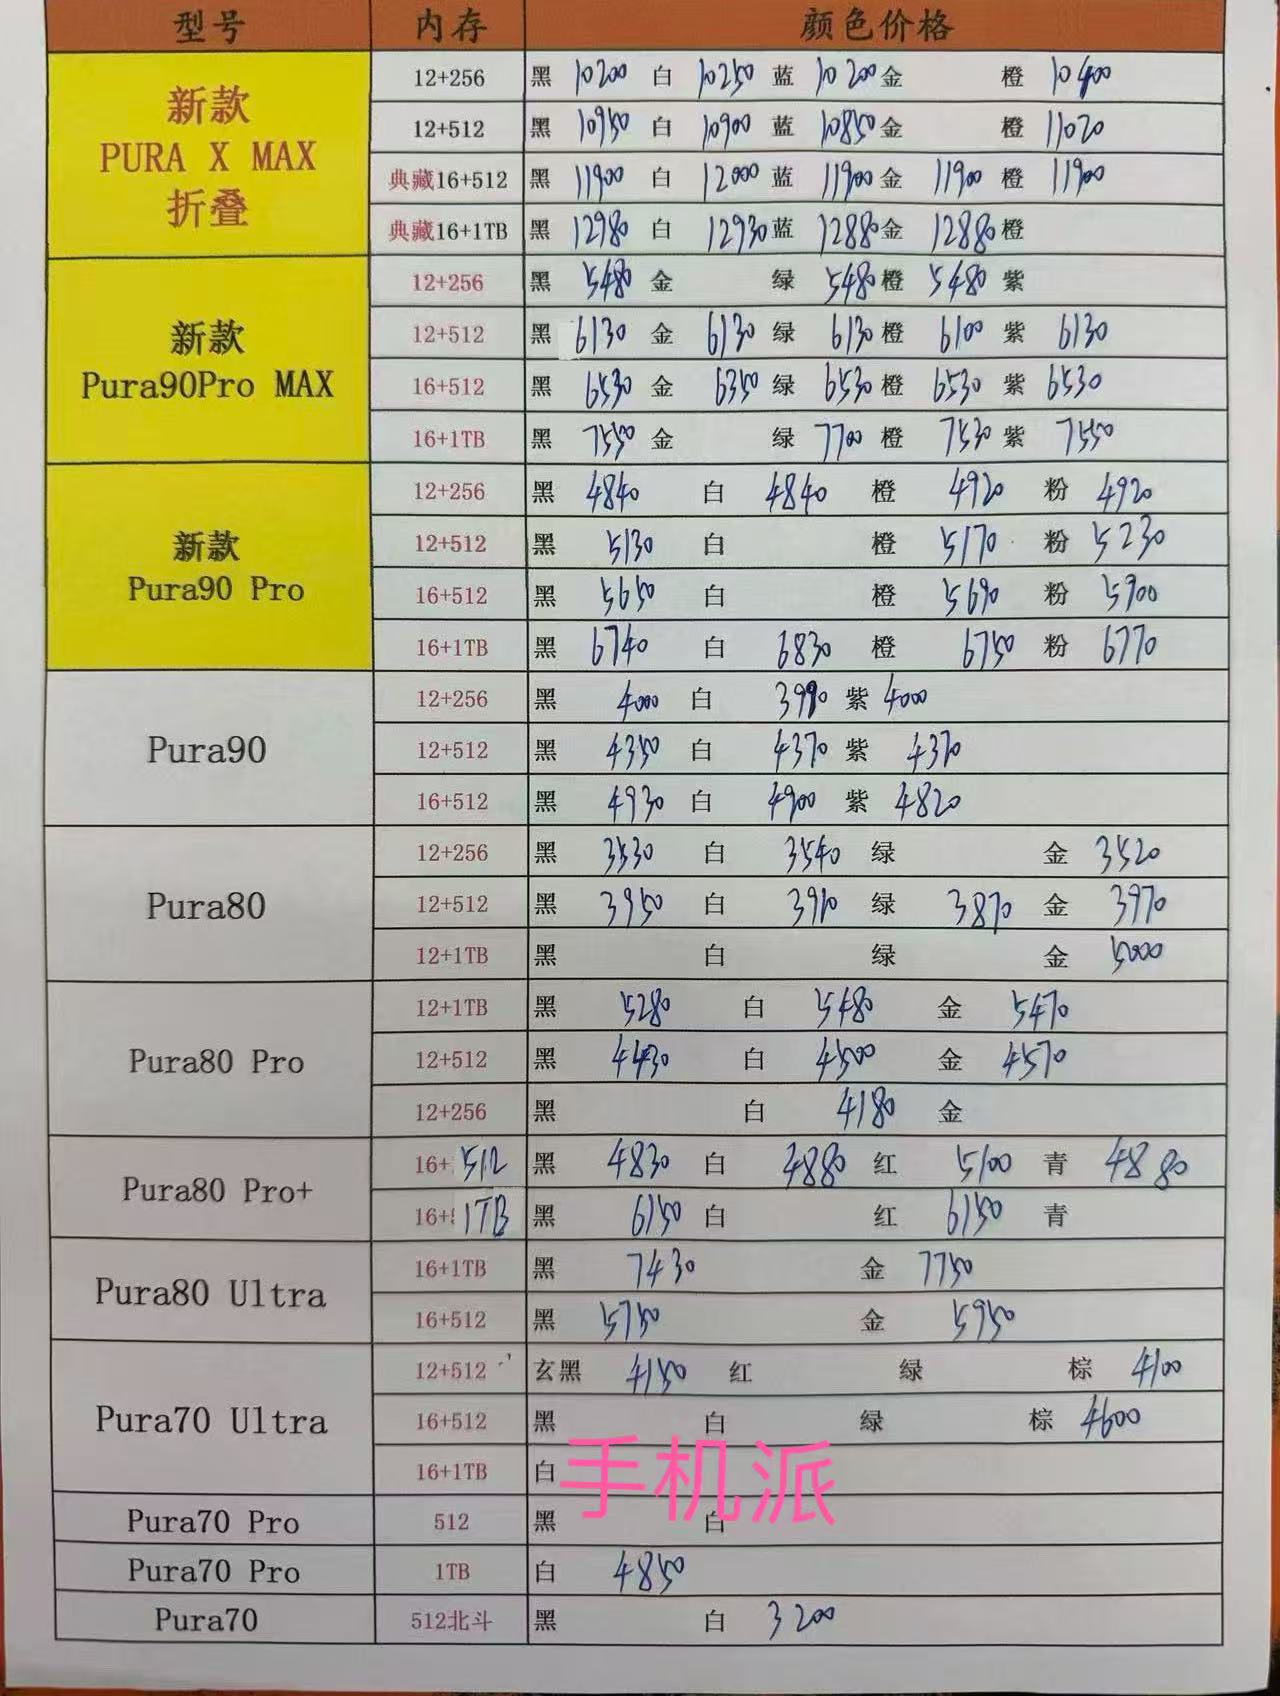 型号 内存 颜色价格
新款 PURA X MAX 折叠
12+256 黑 10200 白 10250 蓝 10200 金 橙 10400
12+512 黑 10950 白 10900 蓝 10850 金 橙 11020
典藏16+512 黑 11900 白 12000 蓝 11900 金 11900 橙 11900
典藏16+1TB 黑 12980 白 12930 蓝 12880 金 12880 橙
新款 Pura90Pro MAX
12+256 黑 5480 金 绿 5480 橙 5480 紫
12+512 黑 6130 金 6130 绿 6130 橙 6100 紫 6130
16+512 黑 6530 金 6350 绿 6530 橙 6530 紫 6530
16+1TB 黑 7550 金 绿 7700 橙 7530 紫 7550
新款 Pura90 Pro
12+256 黑 4840 白 4840 橙 4920 粉 4920
12+512 黑 5130 白 橙 5170 粉 5230
16+512 黑 5650 白 橙 5690 粉 5900
16+1TB 黑 6740 白 6830 橙 6750 粉 6770
Pura90
12+256 黑 4000 白 3990 紫 4000
12+512 黑 4350 白 4370 紫 4370
16+512 黑 4930 白 4900 紫 4820
Pura80
12+256 黑 3530 白 3540 绿 金 3520
12+512 黑 3950 白 3910 绿 3870 金 3970
12+1TB 黑 白 绿 金 5000
Pura80 Pro
12+1TB 黑 5280 白 5480 金 5470
12+512 黑 4430 白 4500 金 4570
12+256 黑 白 4180 金
Pura80 Pro+
16+512 黑 4830 白 4880 红 5100 青 4880
16+1TB 黑 6150 白 红 6150 青
Pura80 Ultra
16+1TB 黑 7430 金 7750
16+512 黑 5750 金 5950
Pura70 Ultra
12+512 玄黑 4150 红 绿 棕 4100
16+512 黑 白 绿 棕 4600
16+1TB 白
手机派
Pura70 Pro 512 黑 白
Pura70 Pro 1TB 白 4850
Pura70 512北斗 黑 白 3200